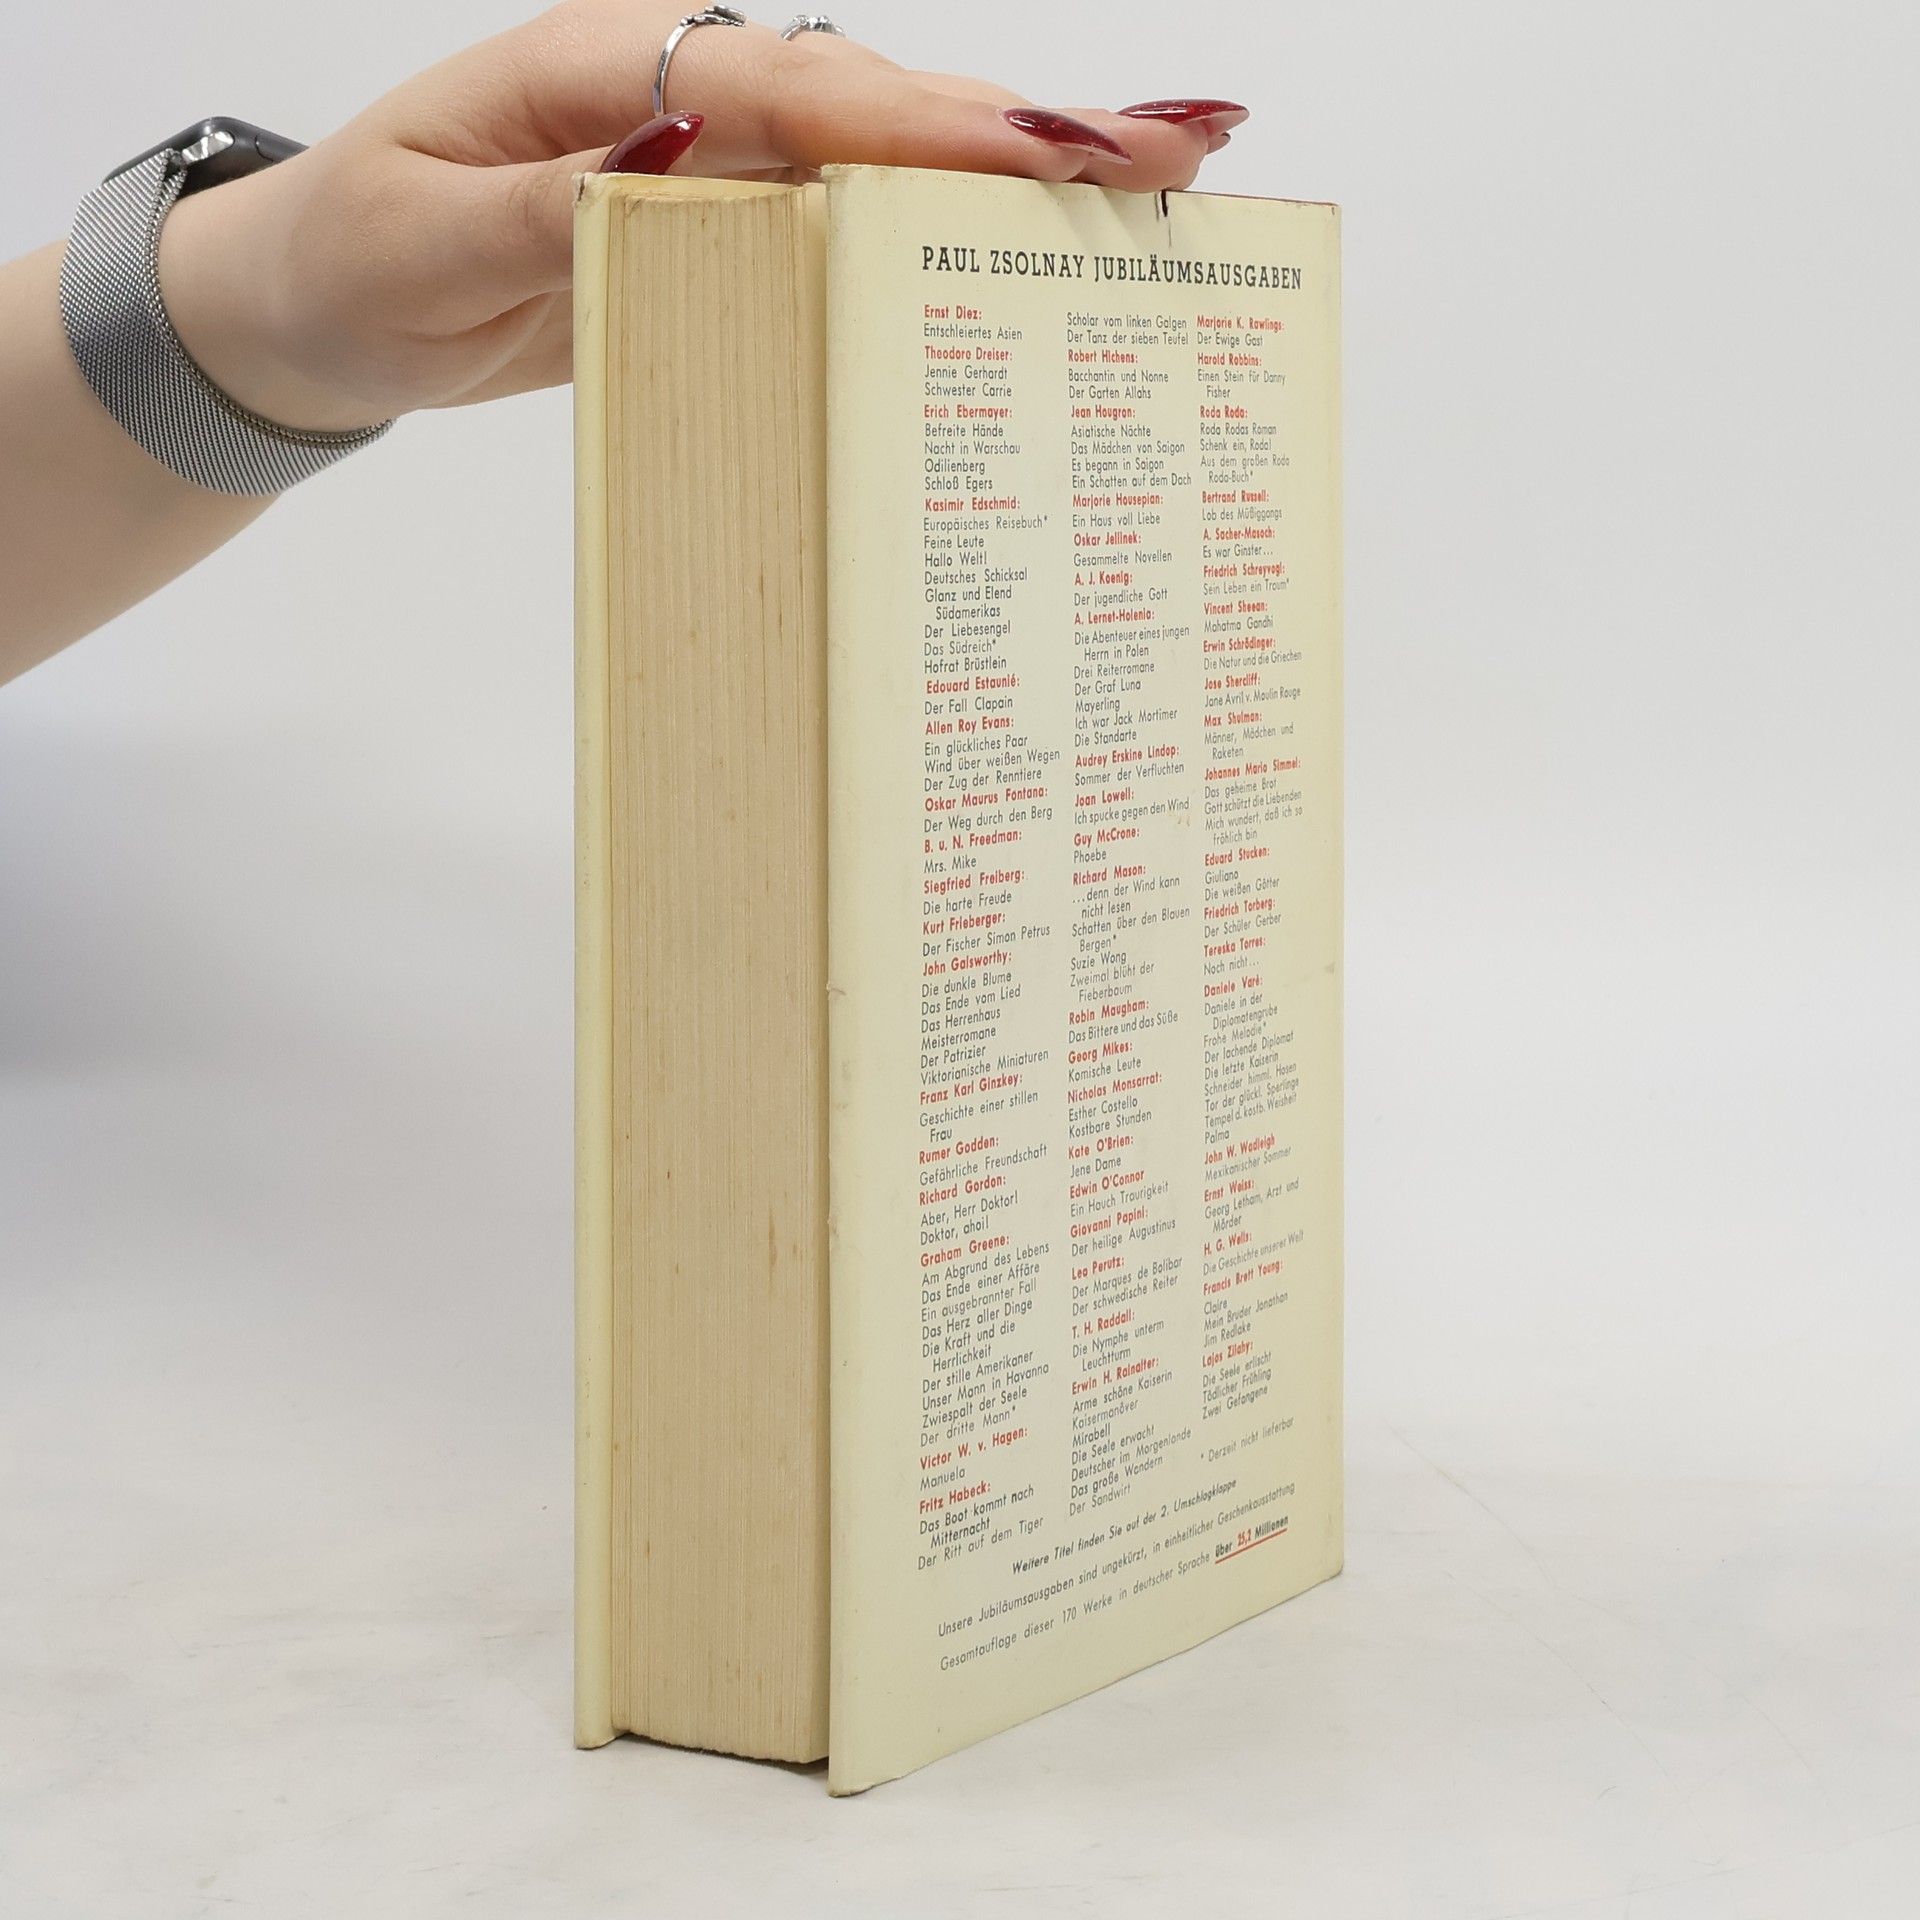 PAUL ZSOLNAY JUBILÄUMSAUSGABEN
Ernst Diez:
Entschleiertes Asien
Theodore Dreiser:
Jennie Gerhardt
Schwester Carrie
Erich Ebermayer:
Befreite Hände
Nacht in Warschau
Odilienberg
Schloß Egers
Kasimir Edschmid:
Europäisches Reisebuch*
Feine Leute
Hallo Welt!
Deutsches Schicksal
Glanz und Elend
Südamerikas
Der Liebesengel
Das Südreich*
Hofrat Brüstlein
Edouard Estaunié:
Der Fall Clapain
Allen Roy Evans:
Ein glückliches Paar
Wind über weißen Wegen
Der Zug der Renntiere
Oskar Maurus Fontana:
Der Weg durch den Berg
B. u. N. Freedman:
Mrs. Mike
Siegfried Freiberg:
Die harte Freude
Kurt Frieberger:
Der Fischer Simon Petrus
John Galsworthy:
Die dunkle Blume
Das Ende vom Lied
Das Herrenhaus
Meisterromane
Der Patrizier
Viktorianische Miniaturen
Franz Karl Ginzkey:
Geschichte einer stillen
Frau
Rumer Godden:
Gefährliche Freundschaft
Richard Gordon:
Aber, Herr Doktor!
Doktor, ahoi!
Graham Greene:
Am Abgrund des Lebens
Das Ende einer Affäre
Ein ausgebrannter Fall
Das Herz aller Dinge
Die Kraft und die
Herrlichkeit
Der stille Amerikaner
Unser Mann in Havanna
Zwiespalt der Seele
Der dritte Mann*
Victor W. v. Hagen:
Manuela
Fritz Habeck:
Das Boot kommt nach
Mitternacht
Der Ritt auf dem Tiger
Scholar vom linken Galgen
Der Tanz der sieben Teufel
Robert Hichens:
Bacchantin und Nonne
Der Garten Allahs
Jean Hougron:
Asiatische Nächte
Das Mädchen von Saigon
Es begann in Saigon
Ein Schatten auf dem Dach
Marjorie Housepian:
Ein Haus voll Liebe
Oskar Jellinek:
Gesammelte Novellen
A. J. Koenig:
Der jugendliche Gott
A. Lernet-Holenia:
Die Abenteuer eines jungen
Herrn in Polen
Drei Reiterromane
Der Graf Luna
Mayerling
Ich war Jack Mortimer
Die Standarte
Audrey Erskine Lindop:
Sommer der Verfluchten
Joan Lowell:
Ich spucke gegen den Wind
Guy McCrone:
Phoebe
Richard Mason:
...denn der Wind kann
nicht lesen
Schatten über den Blauen
Bergen*
Suzie Wong
Zweimal blüht der
Fieberbaum
Robin Maugham:
Das Bittere und das Süße
Georg Mikes:
Komische Leute
Nicholas Monsarrat:
Esther Costello
Kostbare Stunden
Kate O'Brien:
Jene Dame
Edwin O'Connor
Ein Hauch Traurigkeit
Giovanni Papini:
Der heilige Augustinus
Leo Perutz:
Der Marques de Bolibar
Der schwedische Reiter
T. H. Raddall:
Die Nymphe unterm
Leuchtturm
Erwin H. Rainalter:
Arme schöne Kaiserin
Kaisermanöver
Mirabell
Die Seele erwacht
Deutscher im Morgenlande
Das große Wandern
Der Sandwirt
Marjorie K. Rawlings:
Der Ewige Gast
Harold Robbins:
Einen Stein für Danny
Fisher
Roda Roda:
Roda Rodas Roman
Schenk ein, Roda!
Aus dem großen Roda
Roda-Buch*
Bertrand Russell:
Lob des Müßiggangs
A. Sacher-Masoch:
Es war Ginster...
Friedrich Schreyvogl:
Sein Leben ein Traum*
Vincent Sheean:
Mahatma Gandhi
Erwin Schrödinger:
Die Natur und die Griechen
Jose Shercliff:
Jane Avril v. Moulin Rouge
Max Shulman:
Männer, Mädchen und
Raketen
Johannes Mario Simmel:
Das geheime Brot
Gott schützt die Liebenden
Mich wundert, daß ich so
fröhlich bin
Eduard Stucken:
Giuliano
Die weißen Götter
Friedrich Torberg:
Der Schüler Gerber
Tereska Torres:
Noch nicht...
Daniele Varè:
Daniele in der
Diplomatengrube
Frohe Melodie*
Der lachende Diplomat
Die letzte Kaiserin
Schneider himml. Hosen
Tor der glückl. Sperlinge
Tempel d. kostb. Weisheit
Palma
John W. Wadleigh
Mexikanischer Sommer
Ernst Weiss:
Georg Letham, Arzt und
Mörder
H. G. Wells:
Die Geschichte unserer Welt
Francis Brett Young:
Claire
Mein Bruder Jonathan
Jim Redlake
Lajos Zilahy:
Die Seele erlischt
Tödlicher Frühling
Zwei Gefangene
* Derzeit nicht lieferbar
Weitere Titel finden Sie auf der 2. Umschlagklappe
Unsere Jubiläumsausgaben sind ungekürzt, in einheitlicher Geschenkausstattung
Gesamtauflage dieser 170 Werke in deutscher Sprache über 25,2 Millionen